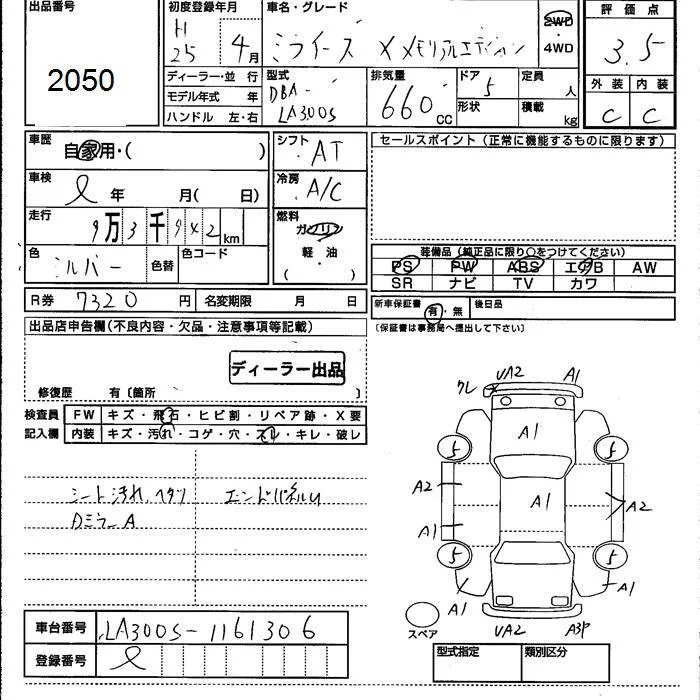 出品番号
2050
初度登録年月
H
25 4月
車名・グレード
ミライース X メモリアルエディション
2WD
4WD
評価点
3.5
外装 内装
C C
ディーラー・並 行
モデル年式 年
ハンドル 左・右
型式
DBA-
LA300S
排気量
660 CC
ドア 5
形状
定員 人
積載 kg
車歴 自家用・( )
車検 年 月( 日)
走行 9万3千942km
色 シルバー 色替 色コード
シフト AT
冷房 A/C
燃料
ガソリン
軽・油
( )
セールスポイント(正常に機能するものに限ります)
装備品(純正品に限り○をつけてください)
PS PW ABS エアB AW
SR ナビ TV カワ
R券 7320円 名変期限 月 日
新車保証書 有・無 後日品
(保証書は事務局へ提出して下さい)
出品店申告欄(不良内容・欠品・注意事項等記載)
ディーラー出品
修復歴 有〔箇所 〕
検査員 FW キズ・飛石・ヒビ割・リペア跡・X要
記入欄 内装 キズ・汚れ・コゲ・穴・スレ・キレ・破レ
シート汚れ、ヘタリ エンドパネルU
Dミラー A
ワレ X UA2 A1
5 A1 5
A2 A1 A2
A1
5 5
A1 A1
スペア UA2 A3P
車台番号 LA300S-1161306
登録番号
型式指定 類別区分